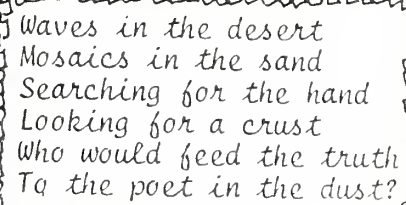 Waves in the desert
Mosaics in the sand
Searching for the hand
Looking for a crust
Who would feed the truth
To the poet in the dust?